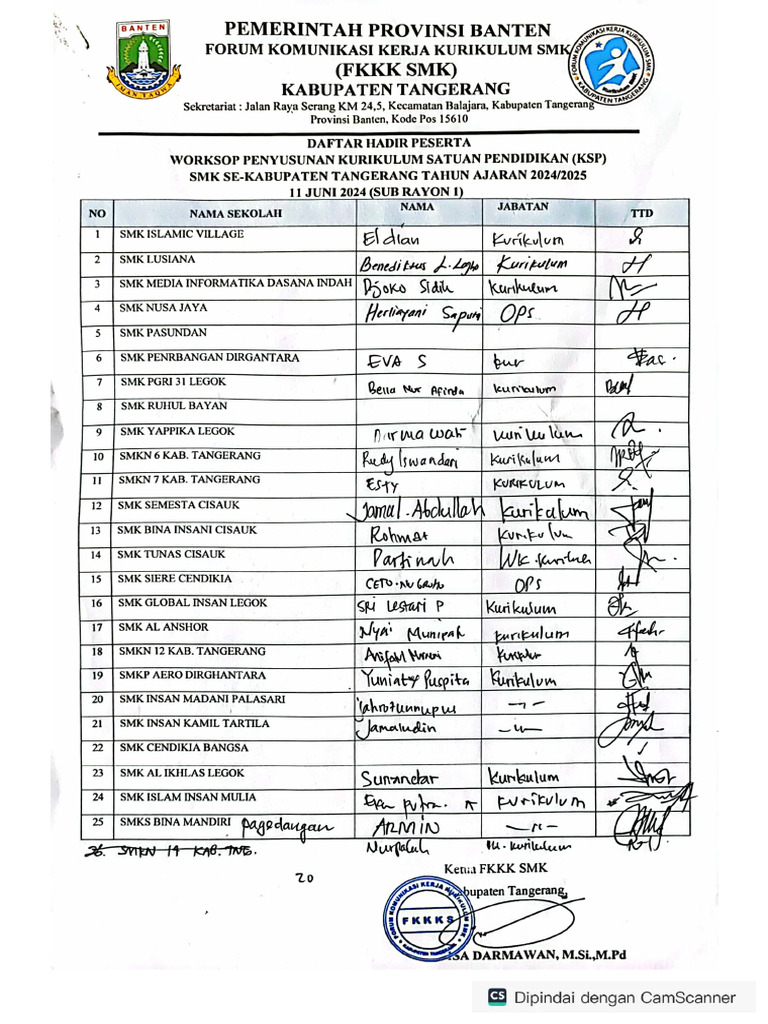 BANTEN
IMAN TAQWA
PEMERINTAH PROVINSI BANTEN
FORUM KOMUNIKASI KERJA KURIKULUM SMK
(FKKK SMK)
KABUPATEN TANGERANG
Sekretariat : Jalan Raya Serang KM 24,5, Kecamatan Balajara, Kabupaten Tangerang
Provinsi Banten, Kode Pos 15610
FORUM KOMUNIKASI KERJA KURIKULUM SMK
KABUPATEN TANGERANG
DAFTAR HADIR PESERTA
WORKSOP PENYUSUNAN KURIKULUM SATUAN PENDIDIKAN (KSP)
SMK SE-KABUPATEN TANGERANG TAHUN AJARAN 2024/2025
11 JUNI 2024 (SUB RAYON I)
NO NAMA SEKOLAH NAMA JABATAN TTD
1 SMK ISLAMIC VILLAGE Eldian Kurikulum
2 SMK LUSIANA Kurikulum
3 SMK MEDIA INFORMATIKA DASANA INDAH Djoko Sidik Kurikulum
4 SMK NUSA JAYA Herliayani OPS
5 SMK PASUNDAN
6 SMK PENRBANGAN DIRGANTARA EVA S kur
7 SMK PGRI 31 LEGOK Bella Nur Afinda kurikulum
8 SMK RUHUL BAYAN
9 SMK YAPPIKA LEGOK Nurmawati kurikulum
10 SMKN 6 KAB. TANGERANG Rudy Iswandari Kurikulum
11 SMKN 7 KAB. TANGERANG ESTY KURIKULUM
12 SMK SEMESTA CISAUK Jamal. Abdullah Kurikulum
13 SMK BINA INSANI CISAUK Rohmat Kurikulum
14 SMK TUNAS CISAUK Partinah
15 SMK SIERE CENDIKIA OPS
16 SMK GLOBAL INSAN LEGOK SRI Lestari P Kurikulum
17 SMK AL ANSHOR Nyai Munipah kurikulum
18 SMKN 12 KAB. TANGERANG
19 SMKP AERO DIRGHANTARA Puspita Kurikulum
20 SMK INSAN MADANI PALASARI -"-
21 SMK INSAN KAMIL TARTILA Jamaludin -"-
22 SMK CENDIKIA BANGSA
23 SMK AL IKHLAS LEGOK Sunandar Kurikulum
24 SMK ISLAM INSAN MULIA kurikulum
25 SMKS BINA MANDIRI pagedangan ARMIN -"-
26. SMKN 14 KAB. TNG. kurikulum
20
Ketua FKKK SMK
Kabupaten Tangerang,
FORUM KOMUNIKASI KERJA KURIKULUM SMK
FKKKS
KABUPATEN TANGERANG
SA DARMAWAN, M.Si.,M.Pd
CS Dipindai dengan CamScanner